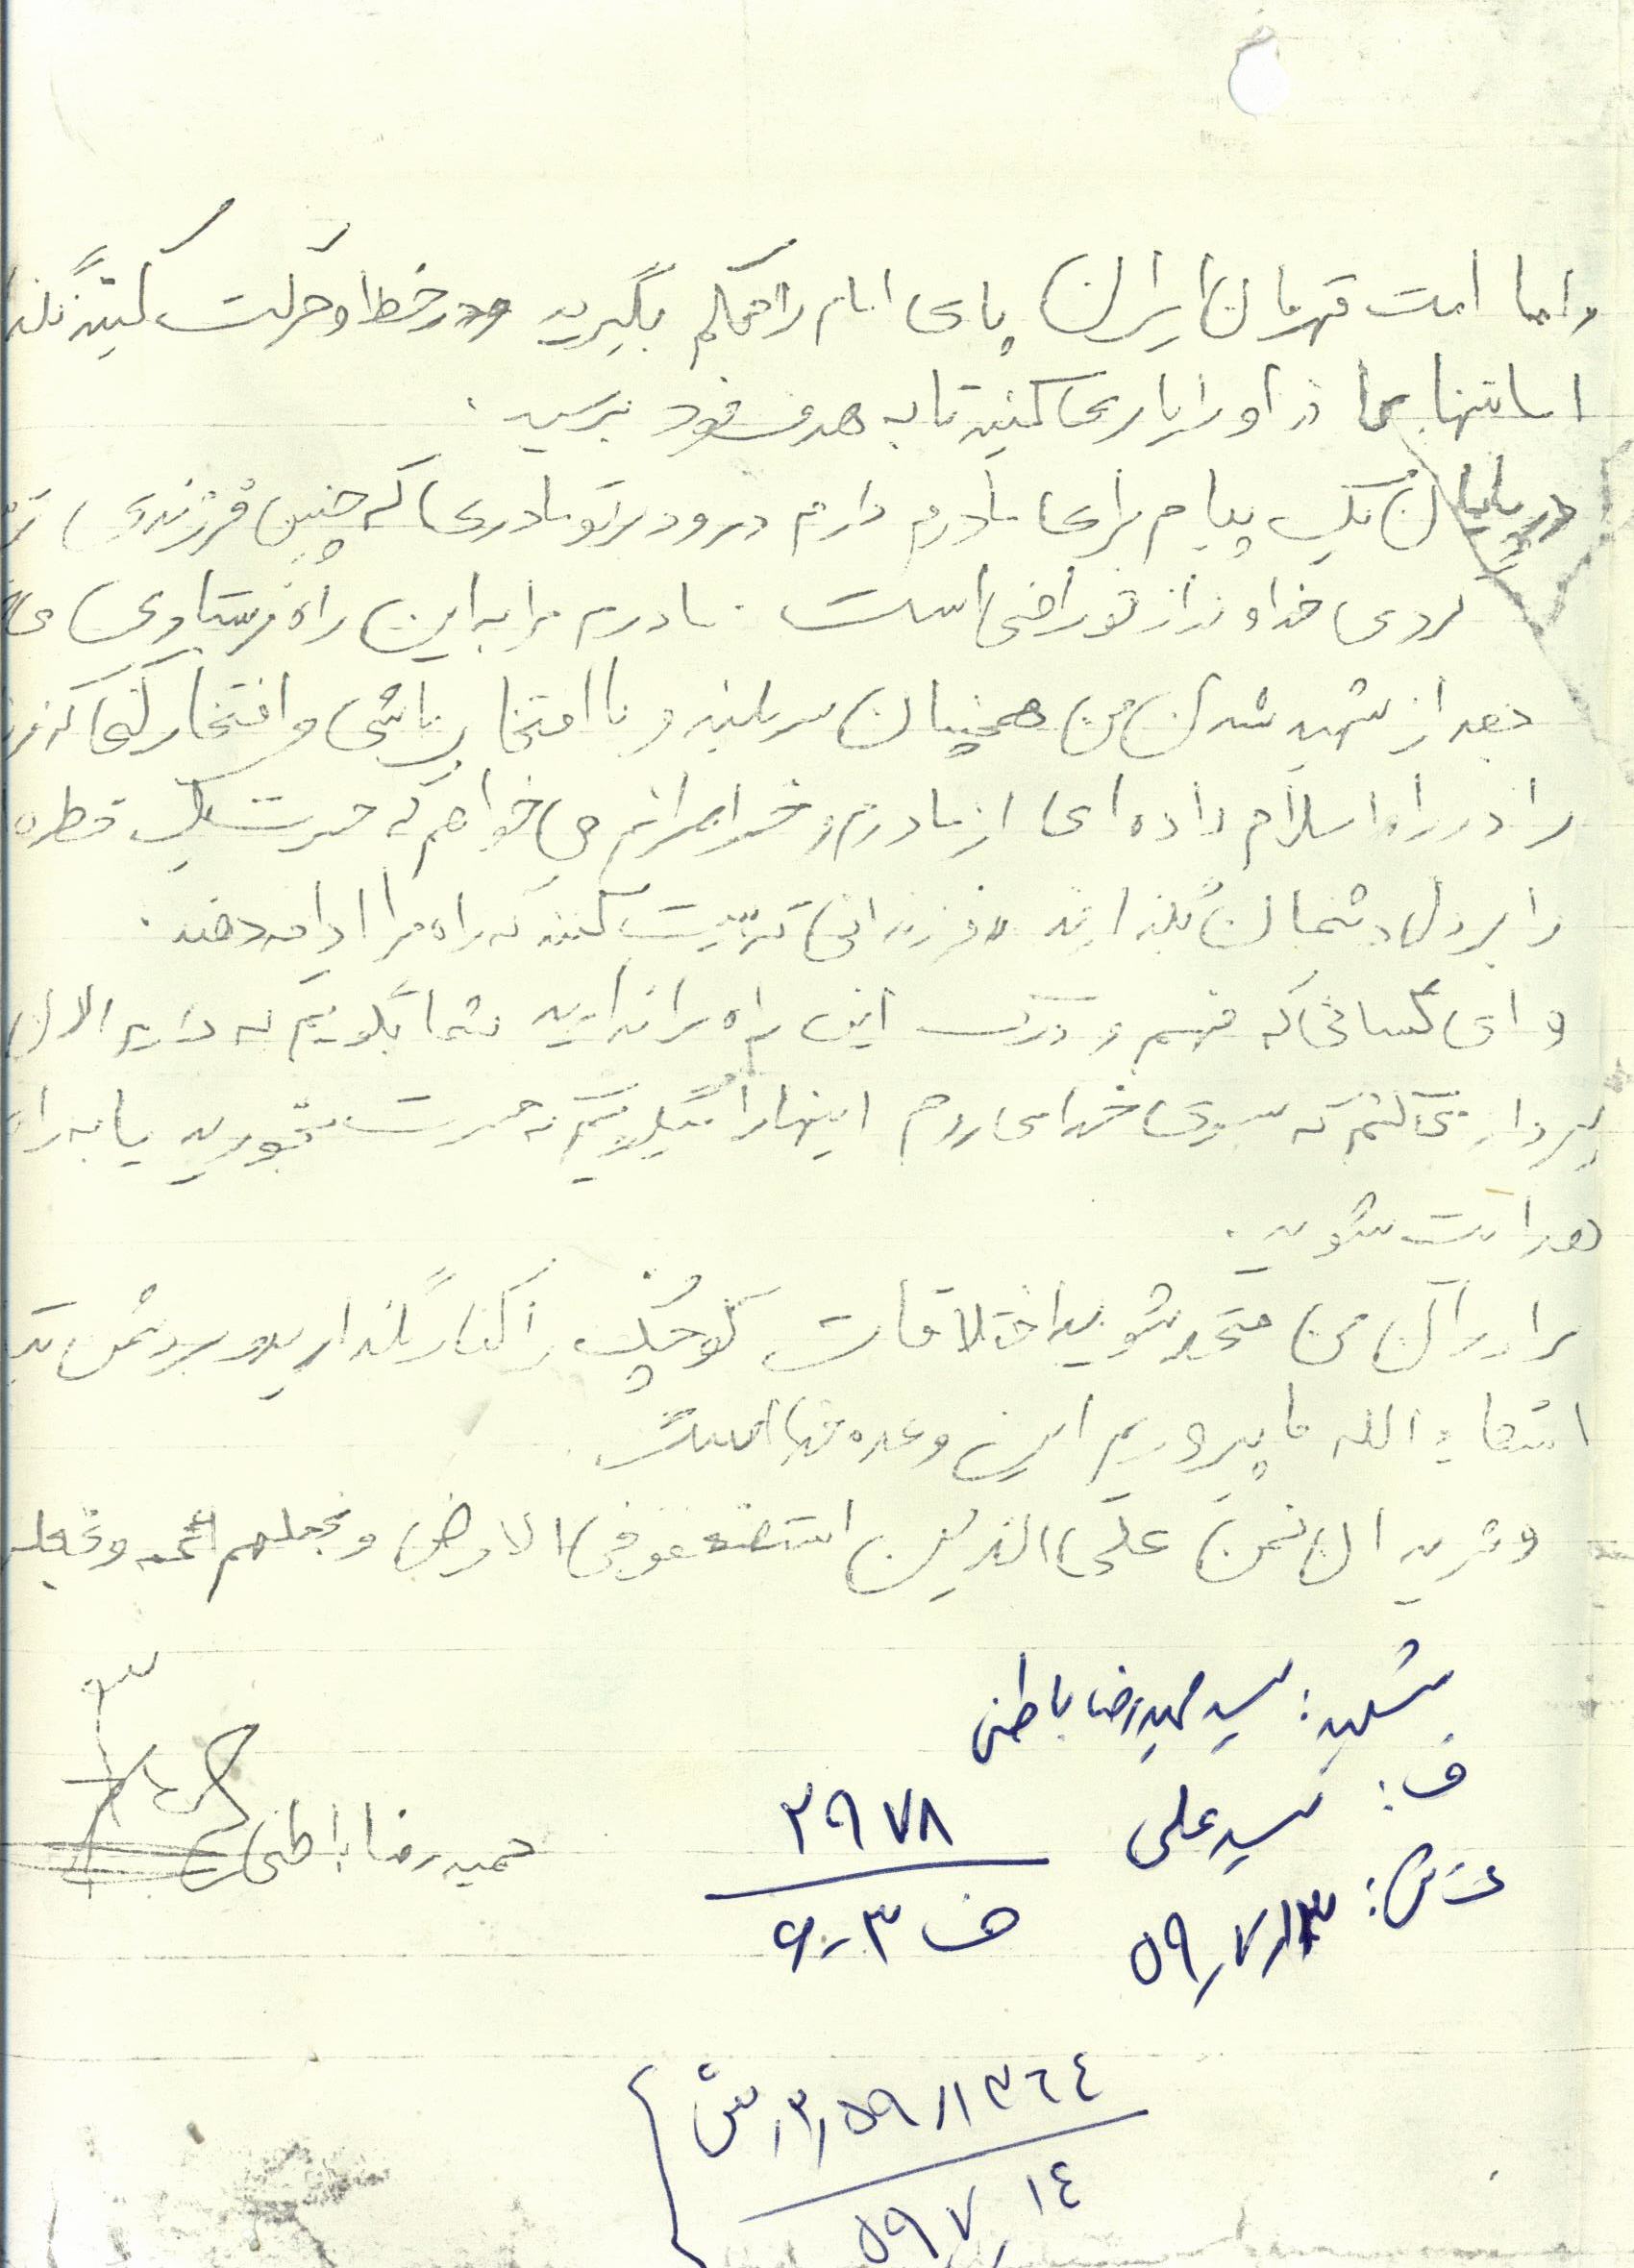 و اما امت قهرمان ایران پای امام را محکم بگیرید و در خط او حرکت کنید
امام تنها او را یاری کنید تا به هدف خود برسید.
در پایان یک پیام برای مادرم دارم درود بر تو مادری که چنین فرزندی
کردی خداوند از تو راضی است . مادرم مرا به این راه فرستادی
بعد از شهید شدن من همچنان سربلند و با افتخار باشی و افتخار کنی که
را در راه اسلام داده‌ای از مادرم و خواهرانم می‌خواهم که حسرت یک قطره
را بر دل دشمنان بگذارند و فرزندانی تربیت کنند که راه مرا ادامه دهند.
و ای کسانی که فهم و درک این راه را ندارید شما بگویم که دارید الان
پرواز می‌کنم که سوی خدا می‌روم اینها را میگویم که حسرت بخورید یا به راه
هدایت شوید.
برادران من متحد شوید اختلافات کوچک را کنار بگذارید و بر دشمن
انشاء الله ما پیروزیم این وعده خدا است
و نرید ان نمن علی الذین استضعفو فی الارض و نجعلهم ائمه و نجعله
شهید: سید حمیدرضا باطنی
ف: سید علی
ش: ۵۹٫۷٫۱۳
۲۹۷۸
ف ۶٫۳
حمیدرضا باطنی
۵۹٫۷٫۱۴